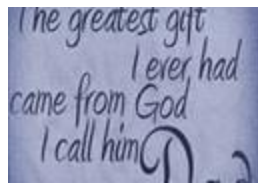 The greatest gift
I ever had
came from God
I call him
Dad